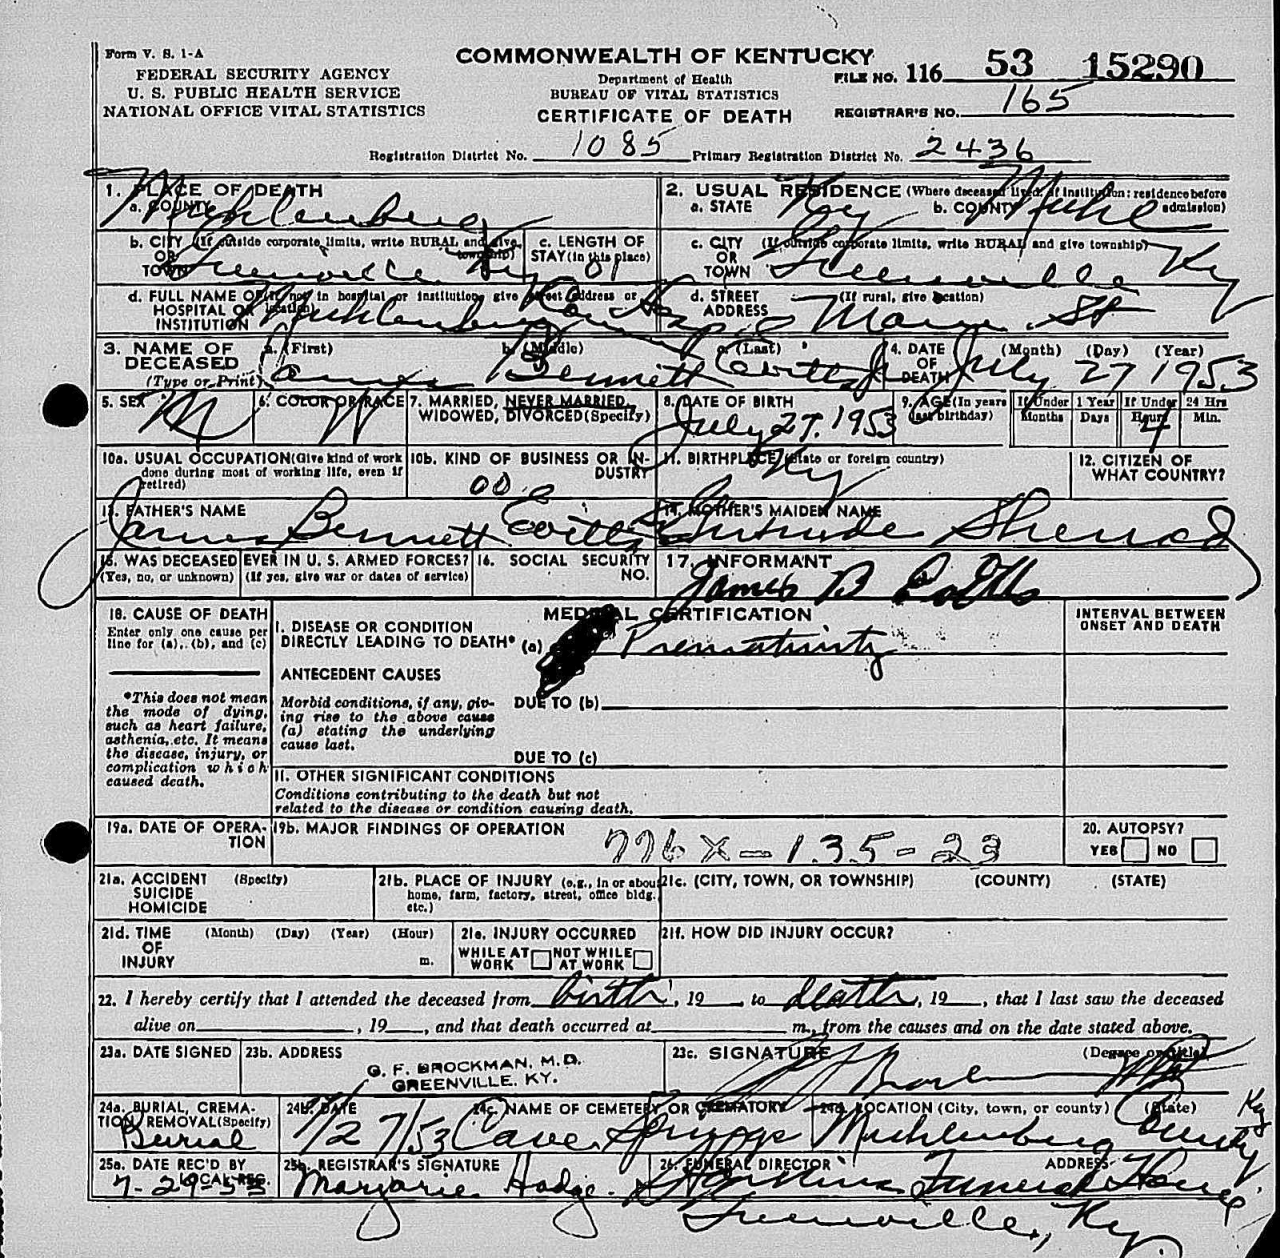 Form V. S. 1-A
FEDERAL SECURITY AGENCY
U. S. PUBLIC HEALTH SERVICE
NATIONAL OFFICE VITAL STATISTICS
COMMONWEALTH OF KENTUCKY
Department of Health
BUREAU OF VITAL STATISTICS
CERTIFICATE OF DEATH
FILE NO. 116 53 15290
REGISTRAR'S NO. 165
Registration District No. 1085 Primary Registration District No. 2436
1. PLACE OF DEATH
a. COUNTY Muhlenberg
2. USUAL RESIDENCE (Where deceased lived. If institution: residence before admission)
a. STATE Ky b. COUNTY Muhl
b. CITY (If outside corporate limits, write RURAL and give township) OR TOWN Greenville Ky
c. LENGTH OF STAY (in this place)
c. CITY (If outside corporate limits, write RURAL and give township) OR TOWN Greenville Ky
d. FULL NAME OF (If not in hospital or institution, give street address or location) HOSPITAL OR INSTITUTION Muhlenberg County Hosp
d. STREET ADDRESS (If rural, give location) Main St
3. NAME OF DECEASED (Type or Print) a. (First) b. (Middle) c. (Last)
James Bennett Evitts Jr
4. DATE OF DEATH (Month) (Day) (Year)
July 27 1953
5. SEX M
6. COLOR OR RACE W
7. MARRIED, NEVER MARRIED, WIDOWED, DIVORCED (Specify)
8. DATE OF BIRTH July 27, 1953
9. AGE (In years last birthday)
If Under 1 Year Months Days
If Under 24 Hrs Hours Min.
4
10a. USUAL OCCUPATION (Give kind of work done during most of working life, even if retired)
10b. KIND OF BUSINESS OR INDUSTRY
11. BIRTHPLACE (State or foreign country) Ky
12. CITIZEN OF WHAT COUNTRY?
13. FATHER'S NAME
James Bennett Evitts
14. MOTHER'S MAIDEN NAME
Gertrude Sherrod
15. WAS DECEASED EVER IN U. S. ARMED FORCES?
(Yes, no, or unknown) (If yes, give war or dates of service)
16. SOCIAL SECURITY NO.
17. INFORMANT
James B Evitts
18. CAUSE OF DEATH
Enter only one cause per line for (a), (b), and (c)
*This does not mean the mode of dying, such as heart failure, asthenia, etc. It means the disease, injury, or complication which caused death.
MEDICAL CERTIFICATION
INTERVAL BETWEEN ONSET AND DEATH
I. DISEASE OR CONDITION
DIRECTLY LEADING TO DEATH* (a) Prematurity
ANTECEDENT CAUSES
Morbid conditions, if any, giving rise to the above cause (a) stating the underlying cause last.
DUE TO (b)
DUE TO (c)
II. OTHER SIGNIFICANT CONDITIONS
Conditions contributing to the death but not
related to the disease or condition causing death.
19a. DATE OF OPERATION
19b. MAJOR FINDINGS OF OPERATION
776X-135-23
20. AUTOPSY?
YES NO
21a. ACCIDENT SUICIDE HOMICIDE (Specify)
21b. PLACE OF INJURY (e.g., in or about home, farm, factory, street, office bldg. etc.)
21c. (CITY, TOWN, OR TOWNSHIP) (COUNTY) (STATE)
21d. TIME OF INJURY (Month) (Day) (Year) (Hour) m.
21e. INJURY OCCURRED
WHILE AT WORK NOT WHILE AT WORK
21f. HOW DID INJURY OCCUR?
22. I hereby certify that I attended the deceased from birth, 19 to death, 19, that I last saw the deceased
alive on, 19, and that death occurred at m., from the causes and on the date stated above.
23a. DATE SIGNED
23b. ADDRESS
G. F. BROCKMAN, M.D.
GREENVILLE, KY.
23c. SIGNATURE (Degree or title)
24a. BURIAL, CREMATION, REMOVAL (Specify) Burial
24b. DATE 7/27/53
24c. NAME OF CEMETERY OR CREMATORY Cave Springs
24d. LOCATION (City, town, or county) (State) Muhlenberg County Ky
25a. DATE REC'D BY LOCAL REG. 7-29-53
25b. REGISTRAR'S SIGNATURE Marjorie Hodge
26. FUNERAL DIRECTOR ADDRESS
Funeral Home
Greenville, Ky